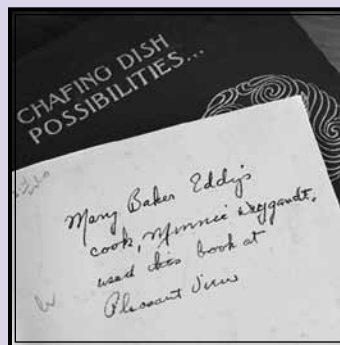 CHAFING DISH
POSSIBILITIES...
Mary Baker Eddy's
cook, Minnie Weygandt,
used this book at
Pleasant View